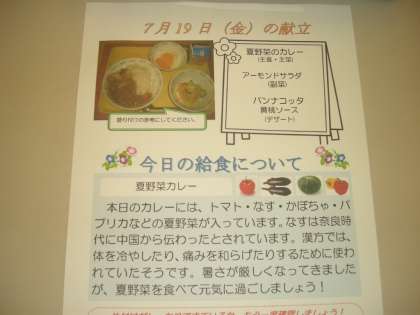 7月19日(金)の献立
夏野菜のカレー
(主食・主菜)
アーモンドサラダ
(副菜)
パンナコッタ
黄桃ソース
(デザート)
盛り付けの参考にしてください。
今日の給食について
夏野菜カレー
本日のカレーには、トマト・なす・かぼちゃ・パ
プリカなどの夏野菜が入っています。なすは奈良時
代に中国から伝わったとされています。漢方では、
体を冷やしたり、痛みを和らげたりするために使わ
れていたそうです。暑さが厳しくなってきました
が、夏野菜を食べて元気に過ごしましょう!